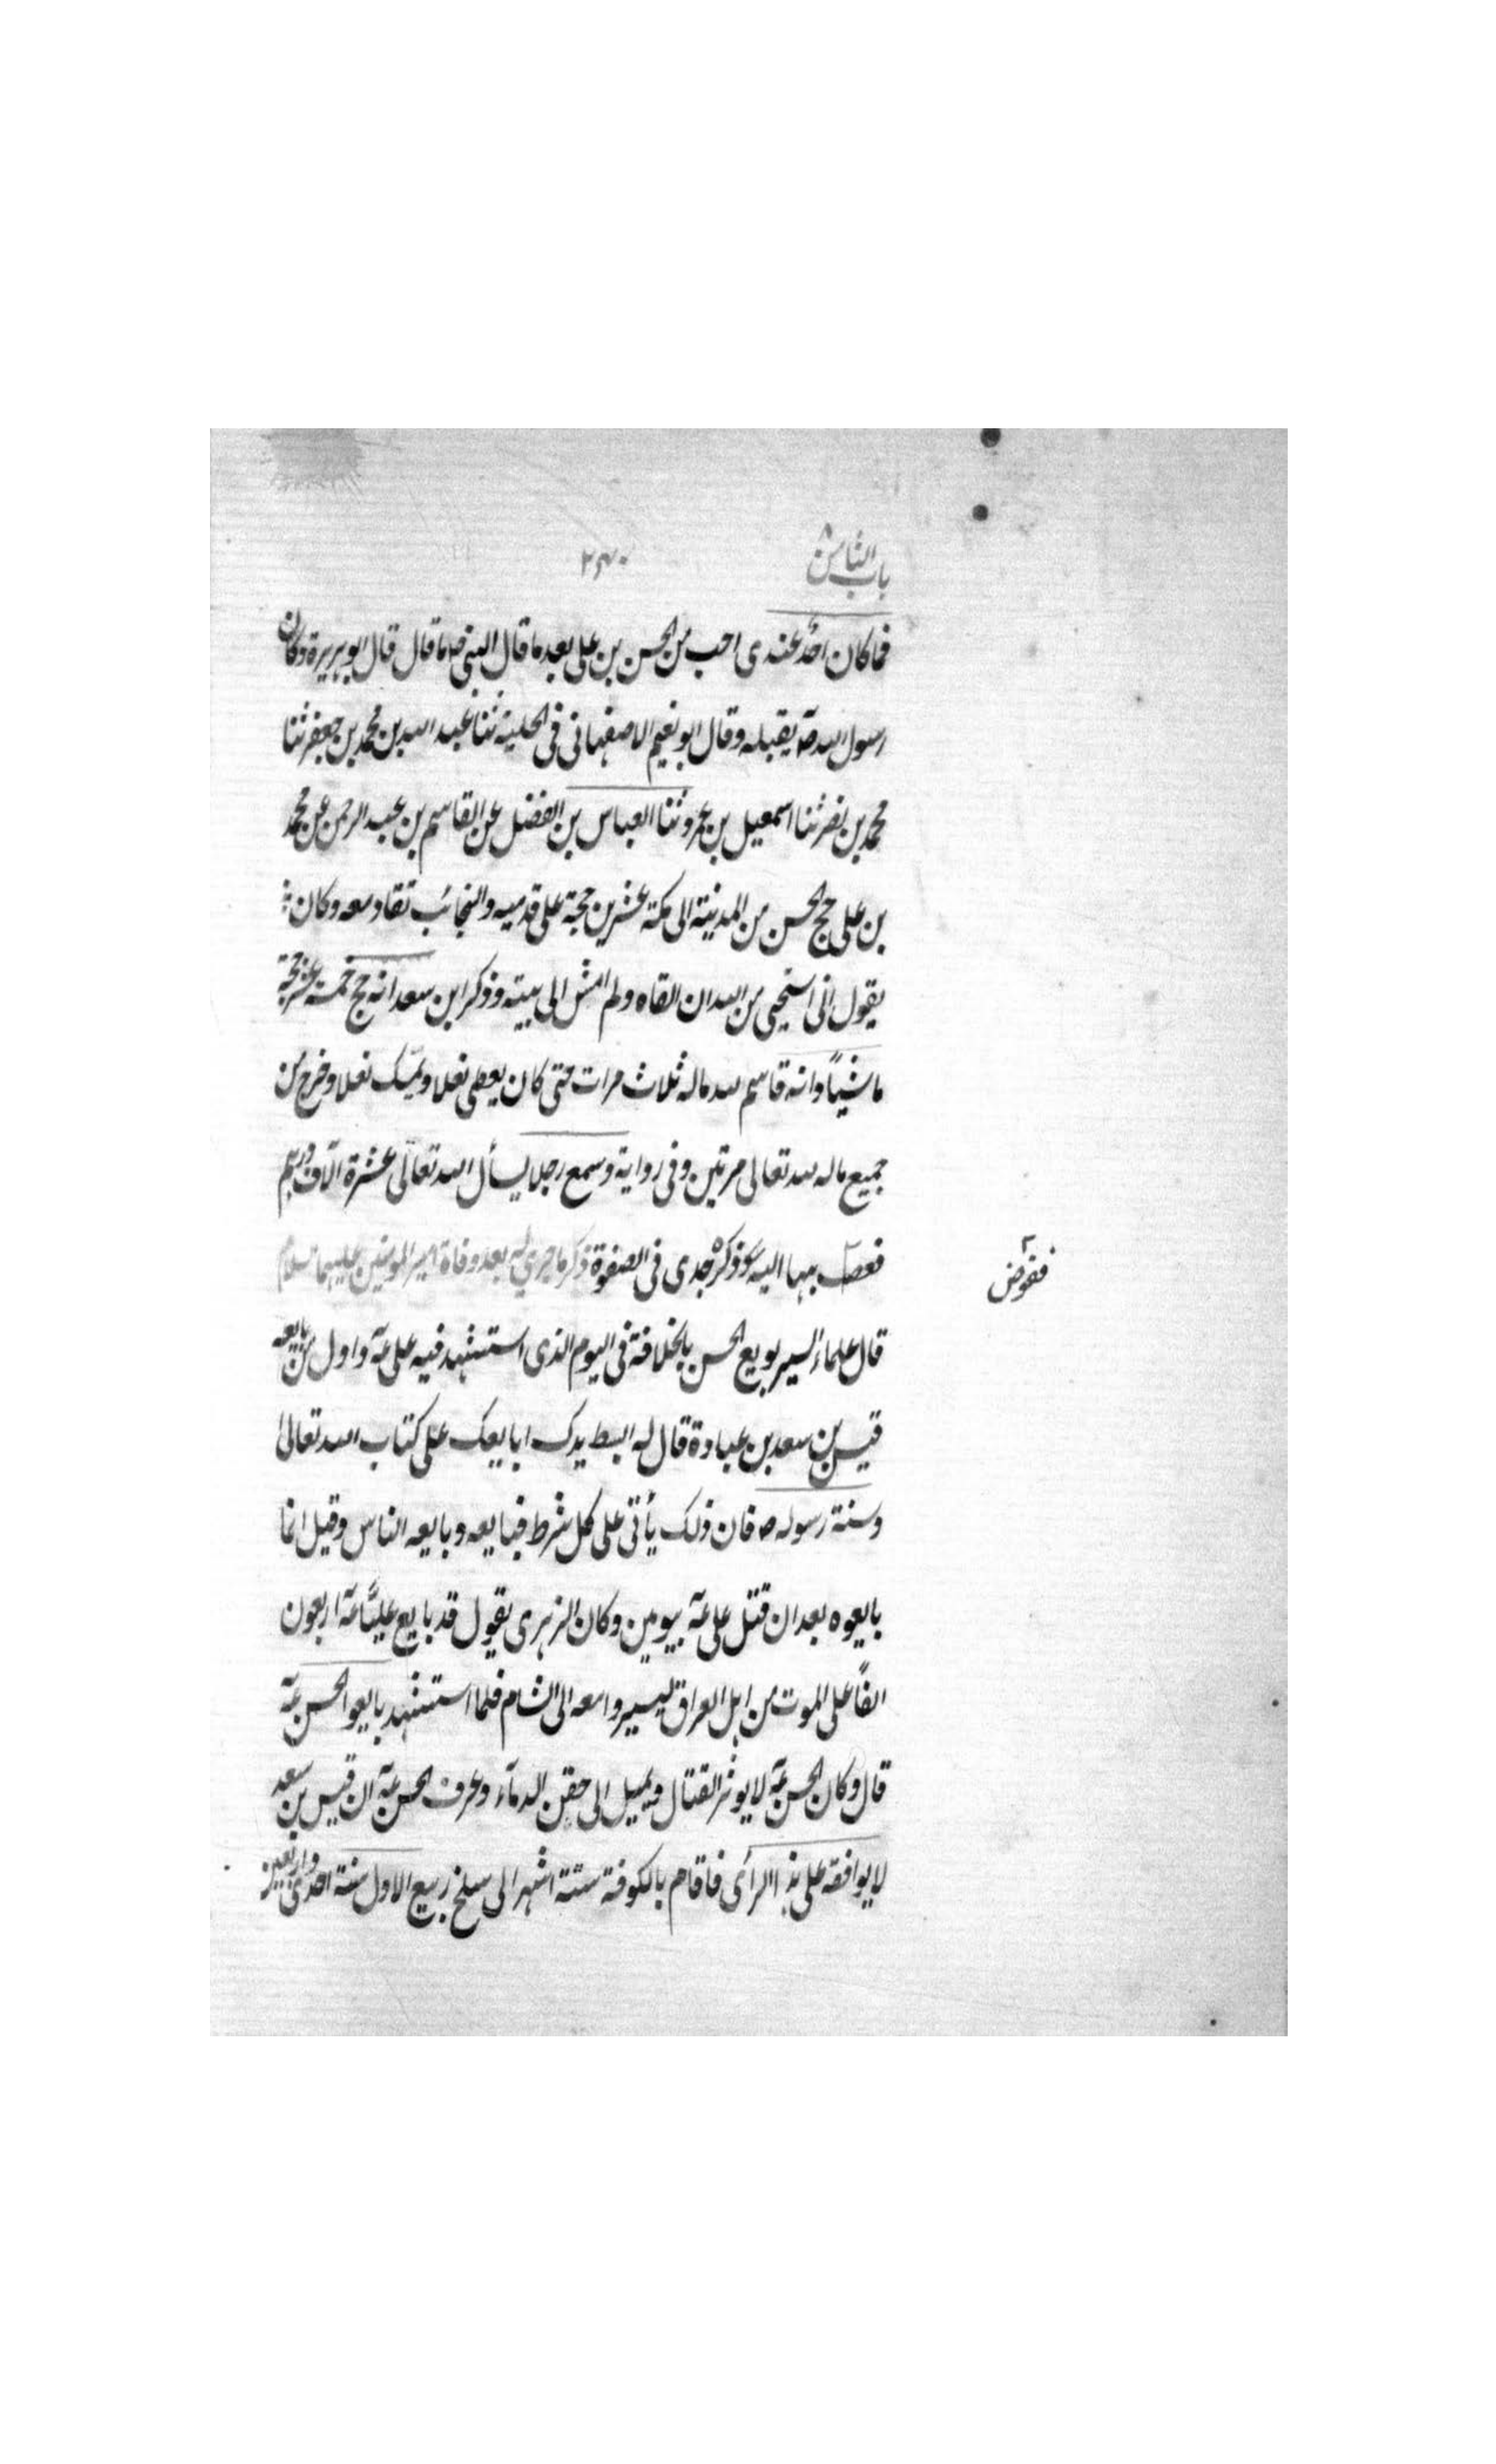 باب الثامن
٢٤٠
فما كان احدٌ عندى احب من الحسن بن على بعد ما قال النبى صلعم ما قال قال ابو هريرة وكان
رسول الله صۤ يقبله وقال ابو نعيم الاصفهانى فى الحلية ثنا عبد الله بن محمد بن جعفر ثنا
محمد بن نصر ثنا اسمعيل بن عمرو ثنا العباس بن الفضل عن القاسم بن عبد الرحمن عن محمد
بن على حج الحسن من المدينة الى مكة عشرين حجة على قدميه والنجائب تقاد معه وكان
يقول انى استحيى من الله ان القاه ولم امش الى بيته وذكر ابن سعد انه حج خمسة عشر حجة
ماشيًا وانه قاسم لله ماله ثلاث مرات حتى كان يعطى نعلا ويمسك نعلا وخرج من
جميع ماله لله تعالى مرتين وفى رواية وسمع رجلا يسأل الله تعالى عشرة آلاف درهم
بها اليه وذكره جدى فى الصفوة ذكر ما جرى له بعد وفاة امير المومنين عليهما سلام
قال علماء السير بويع الحسن بالخلافة فى اليوم الذى استشهد فيه على عۤه واول من بايعه
قيس بن سعد بن عبادة قال له ابسط يدك ابايعك على كتاب الله تعالى
وسنة رسوله ص فان ذلك يأتى على كل شرط فبايعه وبايعه الناس وقيل انما
بايعوه بعد ان قتل على عۤه بيومين وكان الزهرى يقول قد بايع عليًّا عۤه اربعون
الفًا على الموت من اهل العراق ليسيروا معه الى الشام فلما استشهد بايعوا الحسن عۤه
قال وكان الحسن عۤه لا يوثر القتال ويميل الى حقن الدمآء وعرف الحسن عۤه ان قيس بن سعد
لا يوافقه على هذا الرأى فاقام بالكوفة ستة اشهر الى سلخ ربيع الاول سنة احدى واربعين